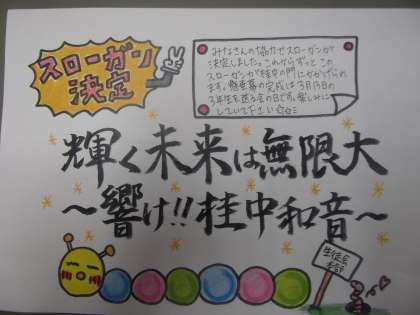 スローガン
決定
みなさんの協力でスローガンが
決定しました。これからずっとこの
スローガンが桂中の門にかかげられ
ます。懸垂幕の完成は3月15日の
3年生を送る会の日です。楽しみに
していて下さい☆
輝く未来は無限大
～響け!!桂中和音～
生徒会